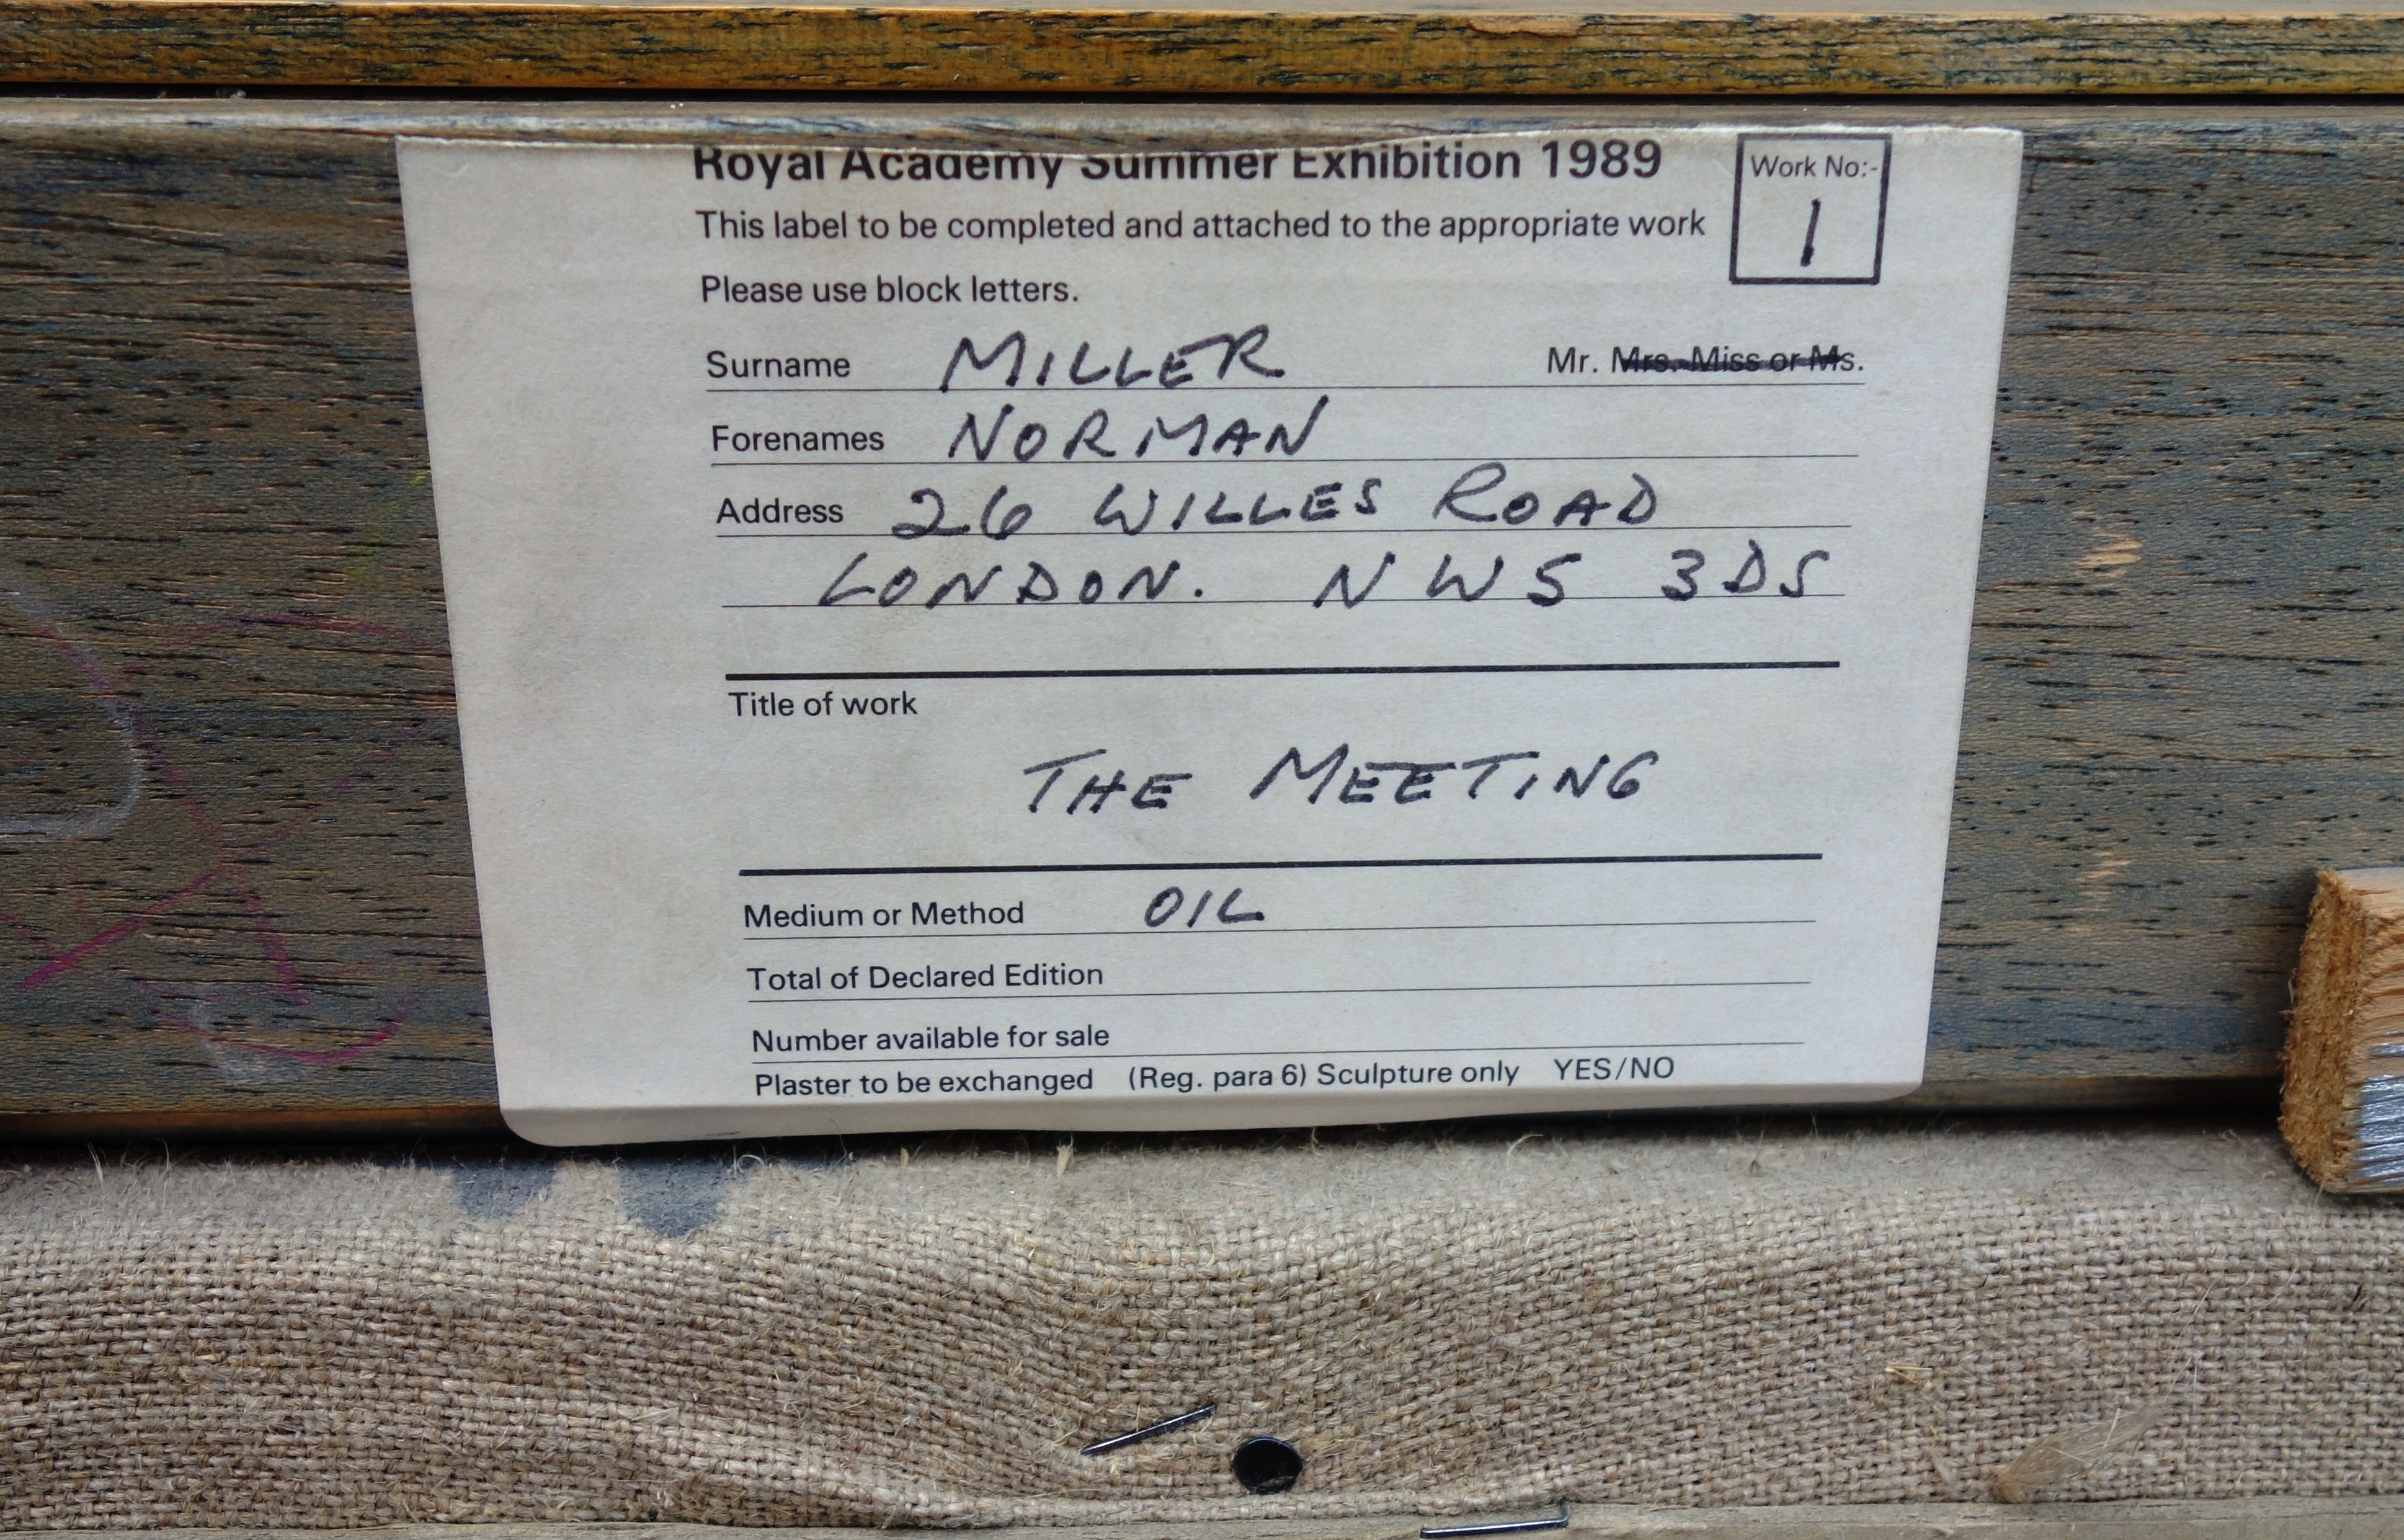 Royal Academy Summer Exhibition 1989
Work No:-
1
This label to be completed and attached to the appropriate work
Please use block letters.
Surname MILLER Mr. Mrs. Miss or Ms.
Forenames NORMAN
Address 26 WILLES ROAD
LONDON. NW5 3DS
Title of work
THE MEETING
Medium or Method OIL
Total of Declared Edition
Number available for sale
Plaster to be exchanged (Reg. para 6) Sculpture only YES/NO